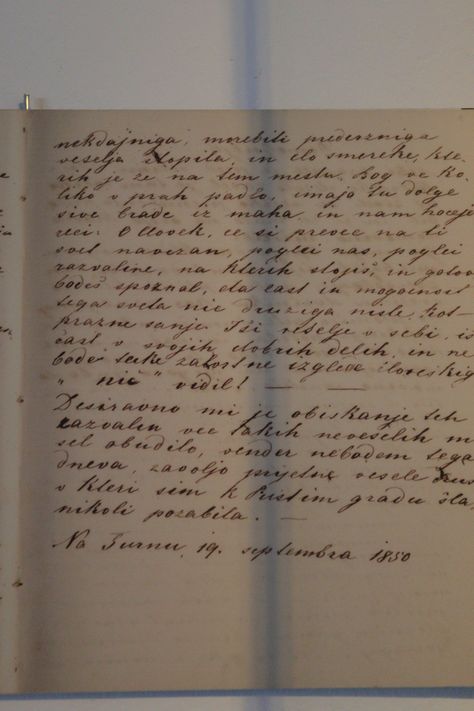 nekdajniga, morebiti prederzniga
veselja stopila, in clo smereke, kte-
rih je že na tem mestu, Bog ve ko-
liko v prah padlo, imajo tu dolge
sive brade iz maha in nam hočejo
reči: O človek, če si preveč na ti
svet navezan, poglej nas, poglej
razvaline, na kterih stojiš, in gotov
bodeš spoznal, da čast in mogočnost
tega sveta nič druziga niste, kot
prazne sanje. Iši veselje v sebi, iš
čast v svojih dobrih delih, in ne
bodeš take žalostne izglede človeškig
„nič“ vidil! — —
Desiravno mi je obiskanje teh
razvalin več takih neveselih m
sel obudilo, vender nebodem tega
dneva, zavoljo prijetne vesele
v kteri sim k Pustim gradu šla,
nikoli pozabila. —
Na Turnu, 19. septembra 1850